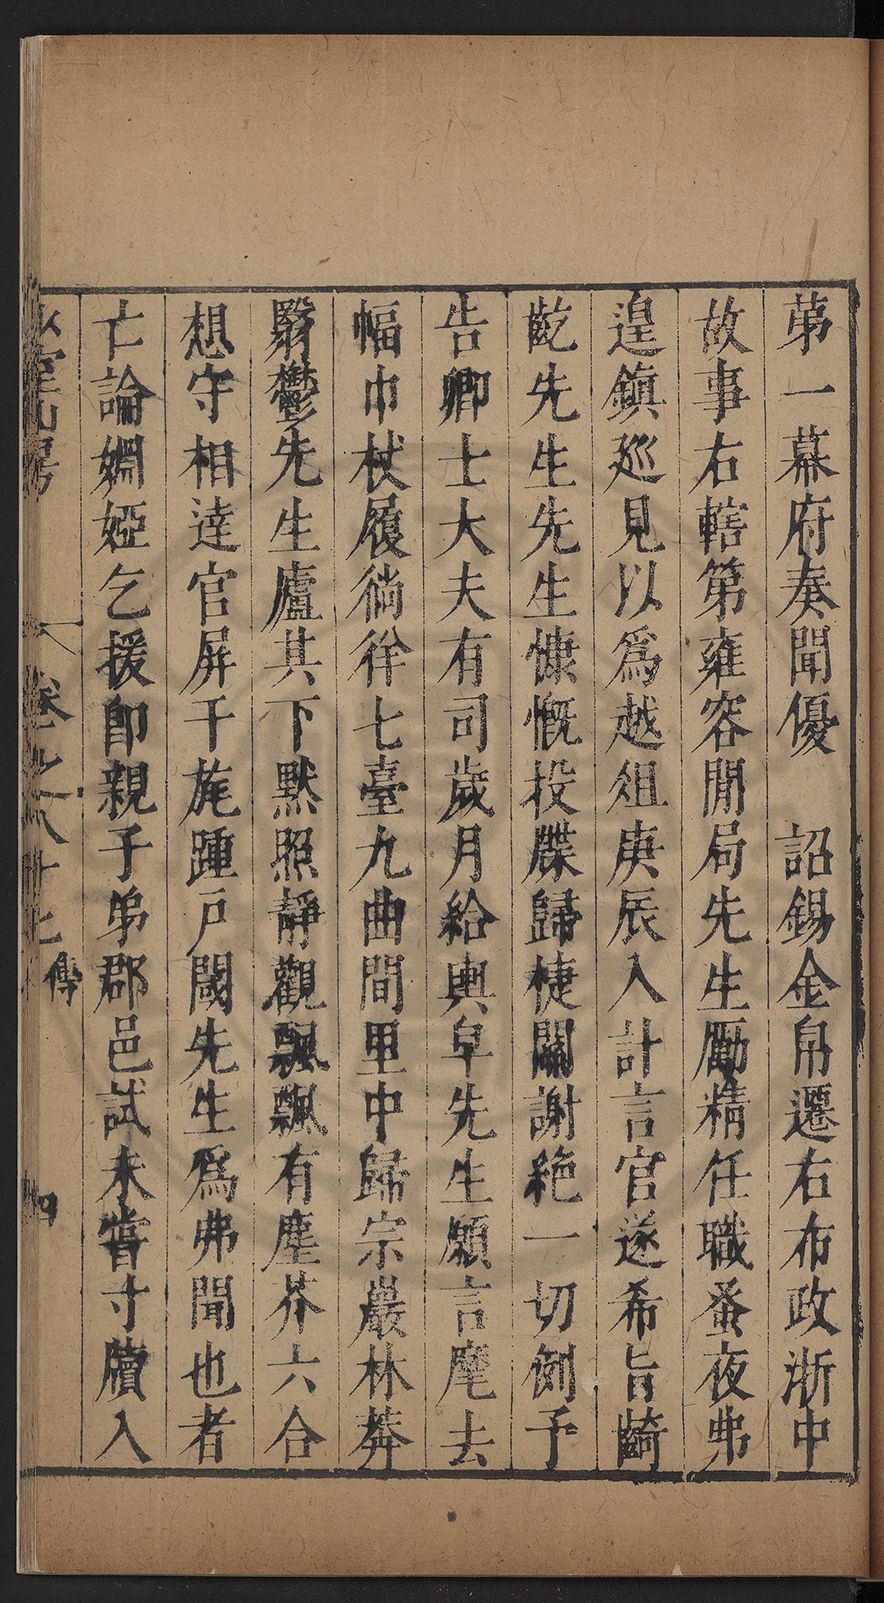 苐一幕府奏聞優　詔錫金帛遷右布政浙中
故事右轄第雍容閒局先生勵精任職蚤夜弗
遑鎮巡見以爲越俎庚辰入計言官遂希旨齮
齕先生先生慷慨投牒歸棲關謝絶一切劄予
告卿士大夫有司歲月給輿皁先生願言麾去
幅巾杖履徜徉七臺九曲間里中歸宗嚴林莽
翳鬱先生廬其下默照靜觀飄飄有塵芥六合
想守相達官屏干旄踵戶閾先生爲弗聞也者
亡論婣婭乞援卽親子弟郡邑試未嘗寸牘入
山房
卷之八十七 傳